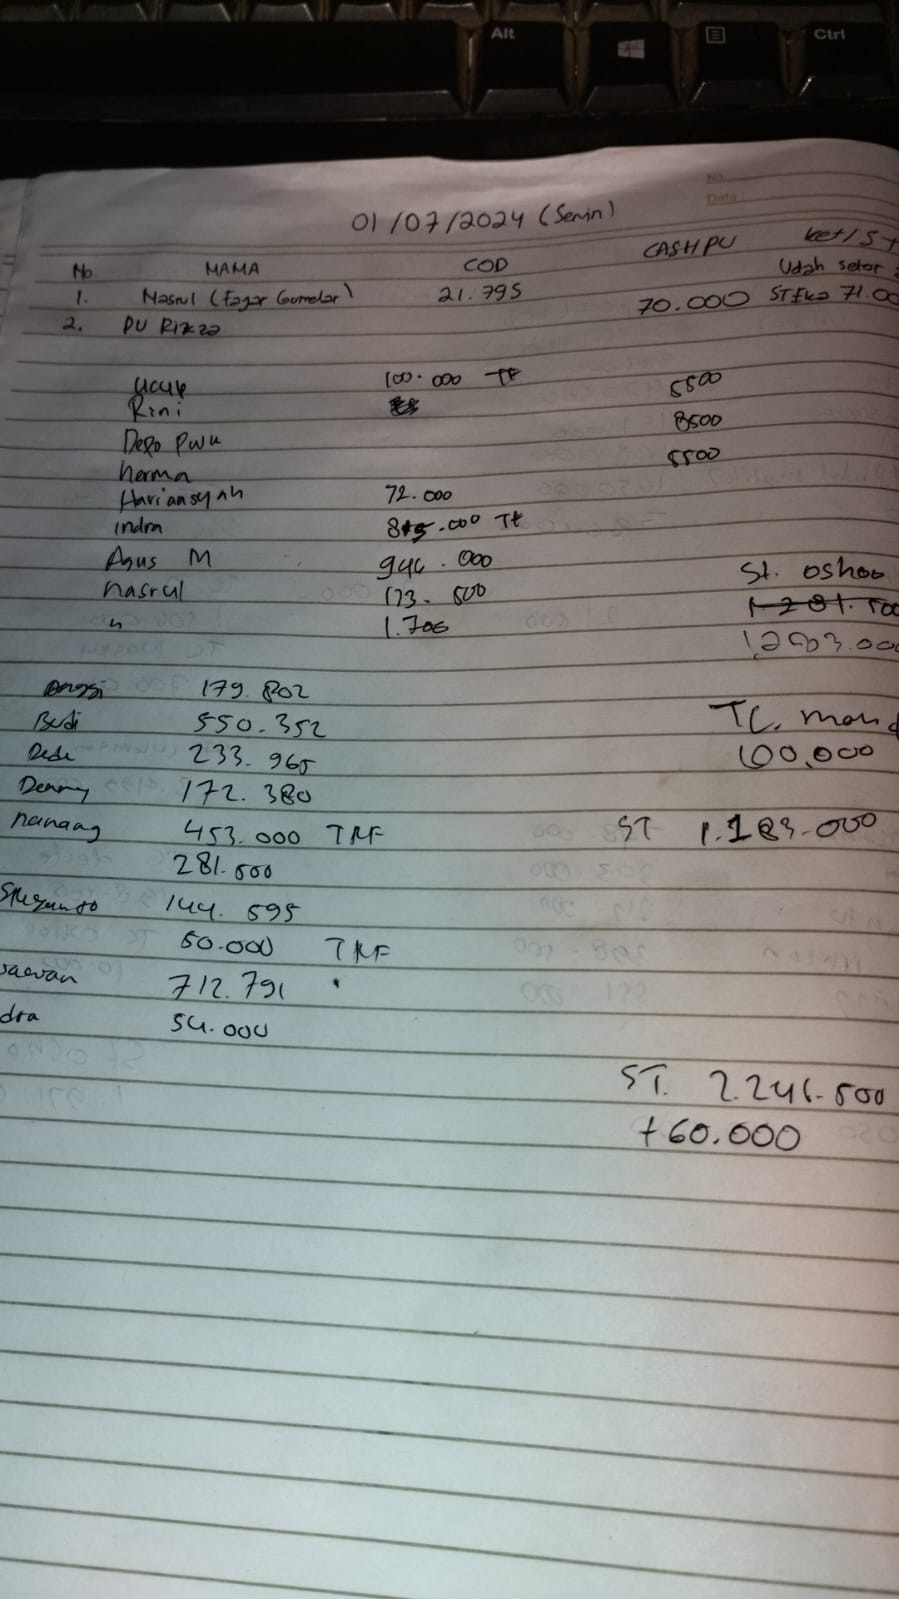 Alt
Ctrl
No.
Date :
01/07/2024 (Senin)
No NAMA COD CASH PU ket/ST
Udah setor
1. Nasrul (Fajar Gumelar) 21.795
2. PU Rizza 70.000 ST Eko 71.00
Ucup 100.000 Tf
Rini 5500
Depo PWK 8500
herma 5500
Hariansyah 72.000
indra .000 Tf
Agus M 944.000
nasrul 173.500 St. oshoo
" 1.706 1.281.500
1,283.000
Anggi 179.802
Budi 550.352 TC. mand
Dede 233.965 100.000
Denny 172.380
nanang 453.000 TRF ST 1.183.000
281.500
Sugianto 144.595
50.000 TRF
aewan 712.791
dra 54.000
ST. 2.246.500
+60.000